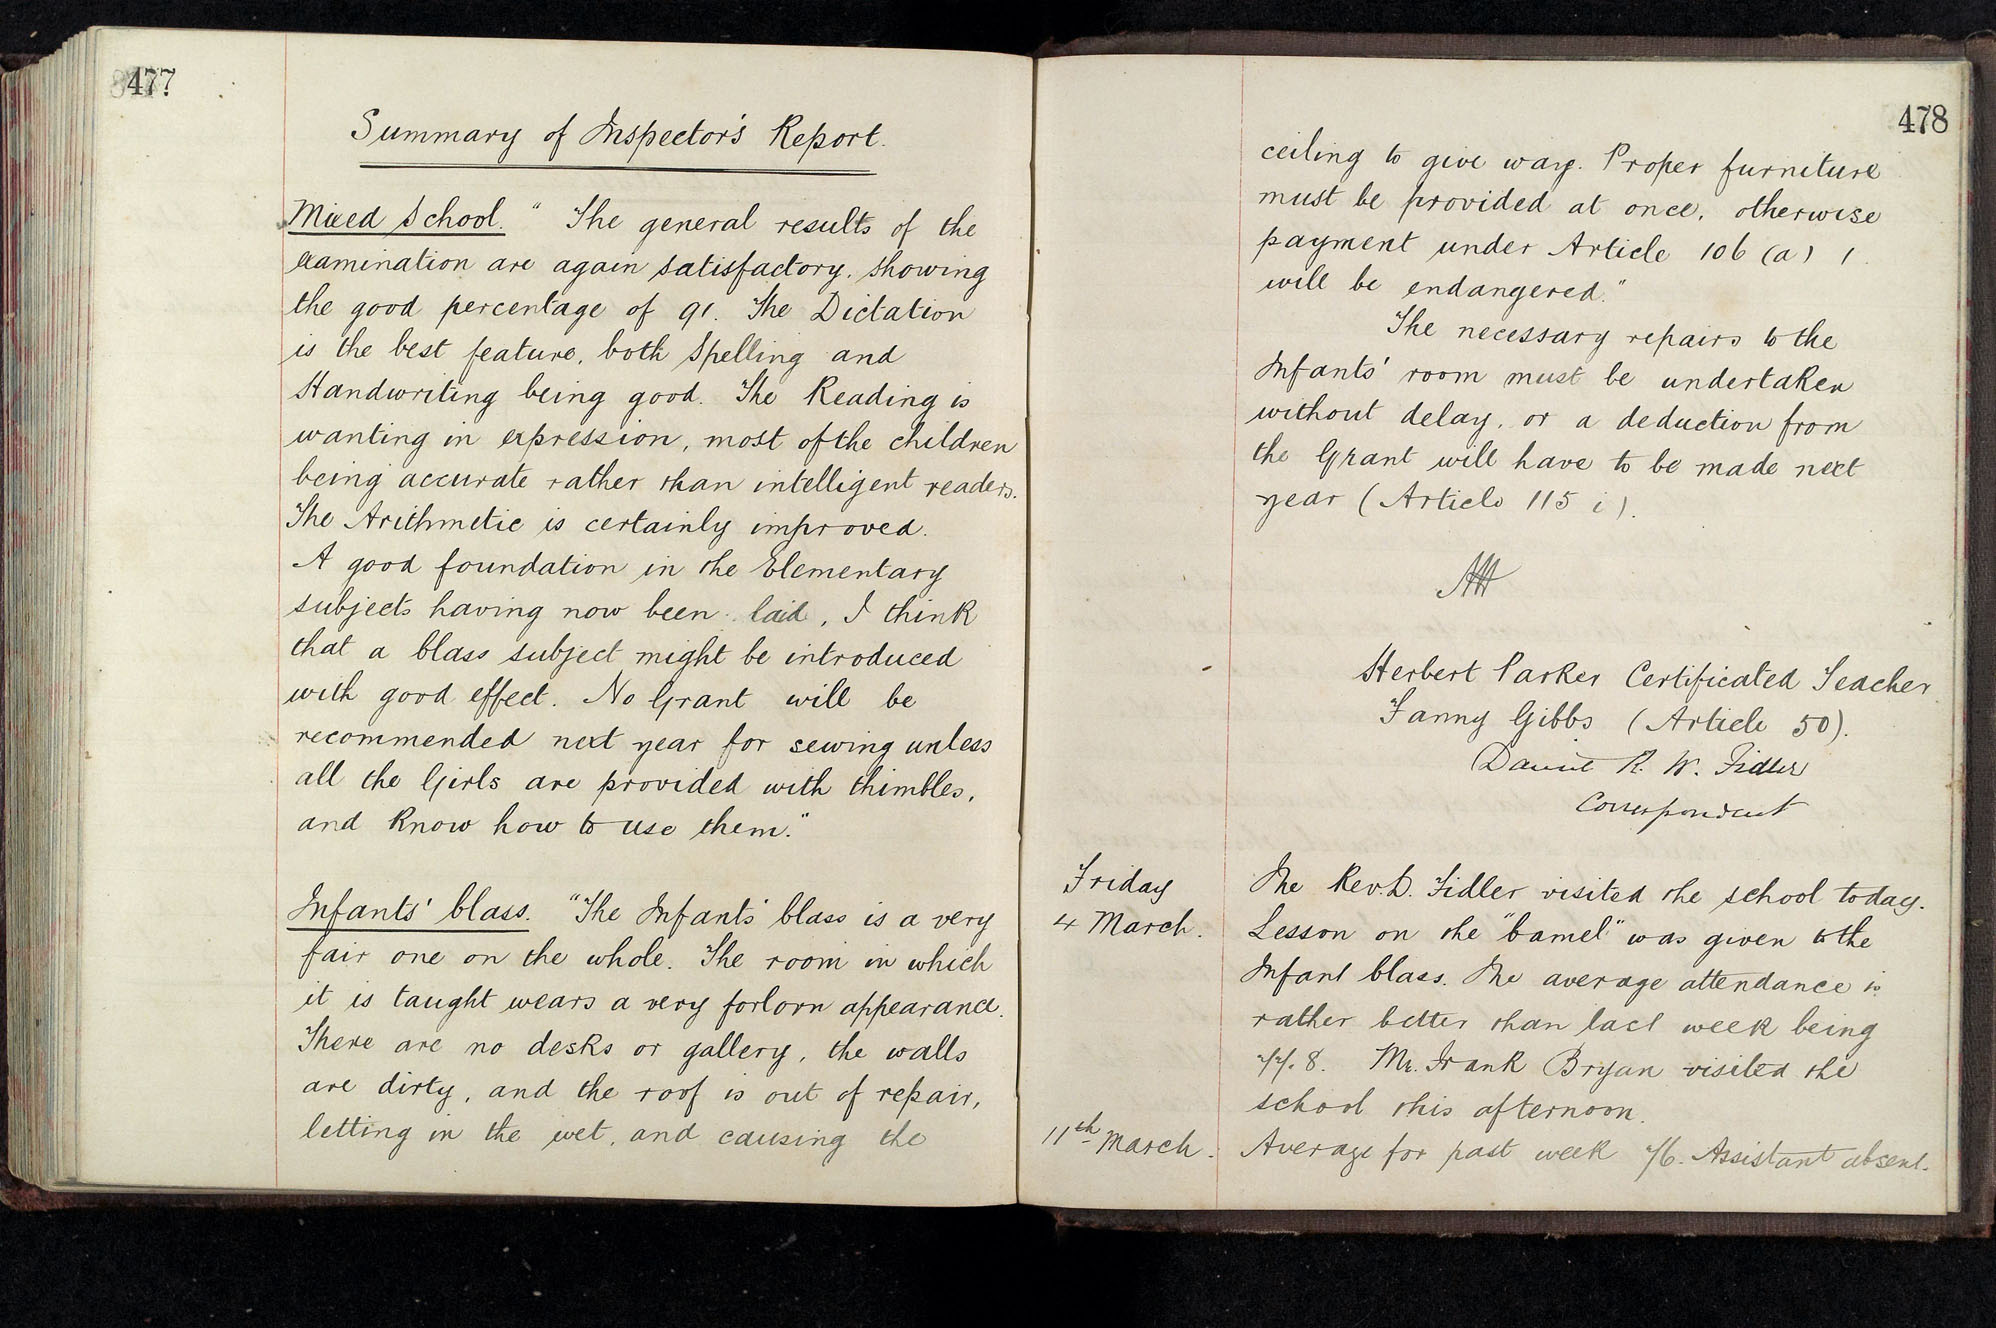 477
Summary of Inspector's Report.
Mixed School. " The general results of the
examination are again satisfactory, showing
the good percentage of 91. The Dictation
is the best feature, both Spelling and
Handwriting being good. The Reading is
wanting in expression, most of the children
being accurate rather than intelligent readers.
The Arithmetic is certainly improved.
A good foundation in the Elementary
subjects having now been laid, I think
that a Class subject might be introduced
with good effect. No Grant will be
recommended next year for sewing unless
all the Girls are provided with thimbles,
and know how to use them."
Infants' Class. "The Infants' Class is a very
fair one on the whole. The room in which
it is taught wears a very forlorn appearance.
There are no desks or gallery, the walls
are dirty, and the roof is out of repair,
letting in the wet, and causing the
478
ceiling to give way. Proper furniture
must be provided at once, otherwise
payment under Article 106 (a) 1
will be endangered."
The necessary repairs to the
Infants' room must be undertaken
without delay, or a deduction from
the Grant will have to be made next
year (Article 115 i).
Herbert Parker Certificated Teacher
Fanny Gibbs (Article 50).
Daniel R. W. Fidler
Correspondent
Friday
4 March.
The Rev. D. Fidler visited the school today.
Lesson on the "Camel" was given to the
Infant Class. The average attendance is
rather better than last week being
77.8. Mr. Frank Bryan visited the
school this afternoon.
11th March.
Average for past week 76. Assistant absent.